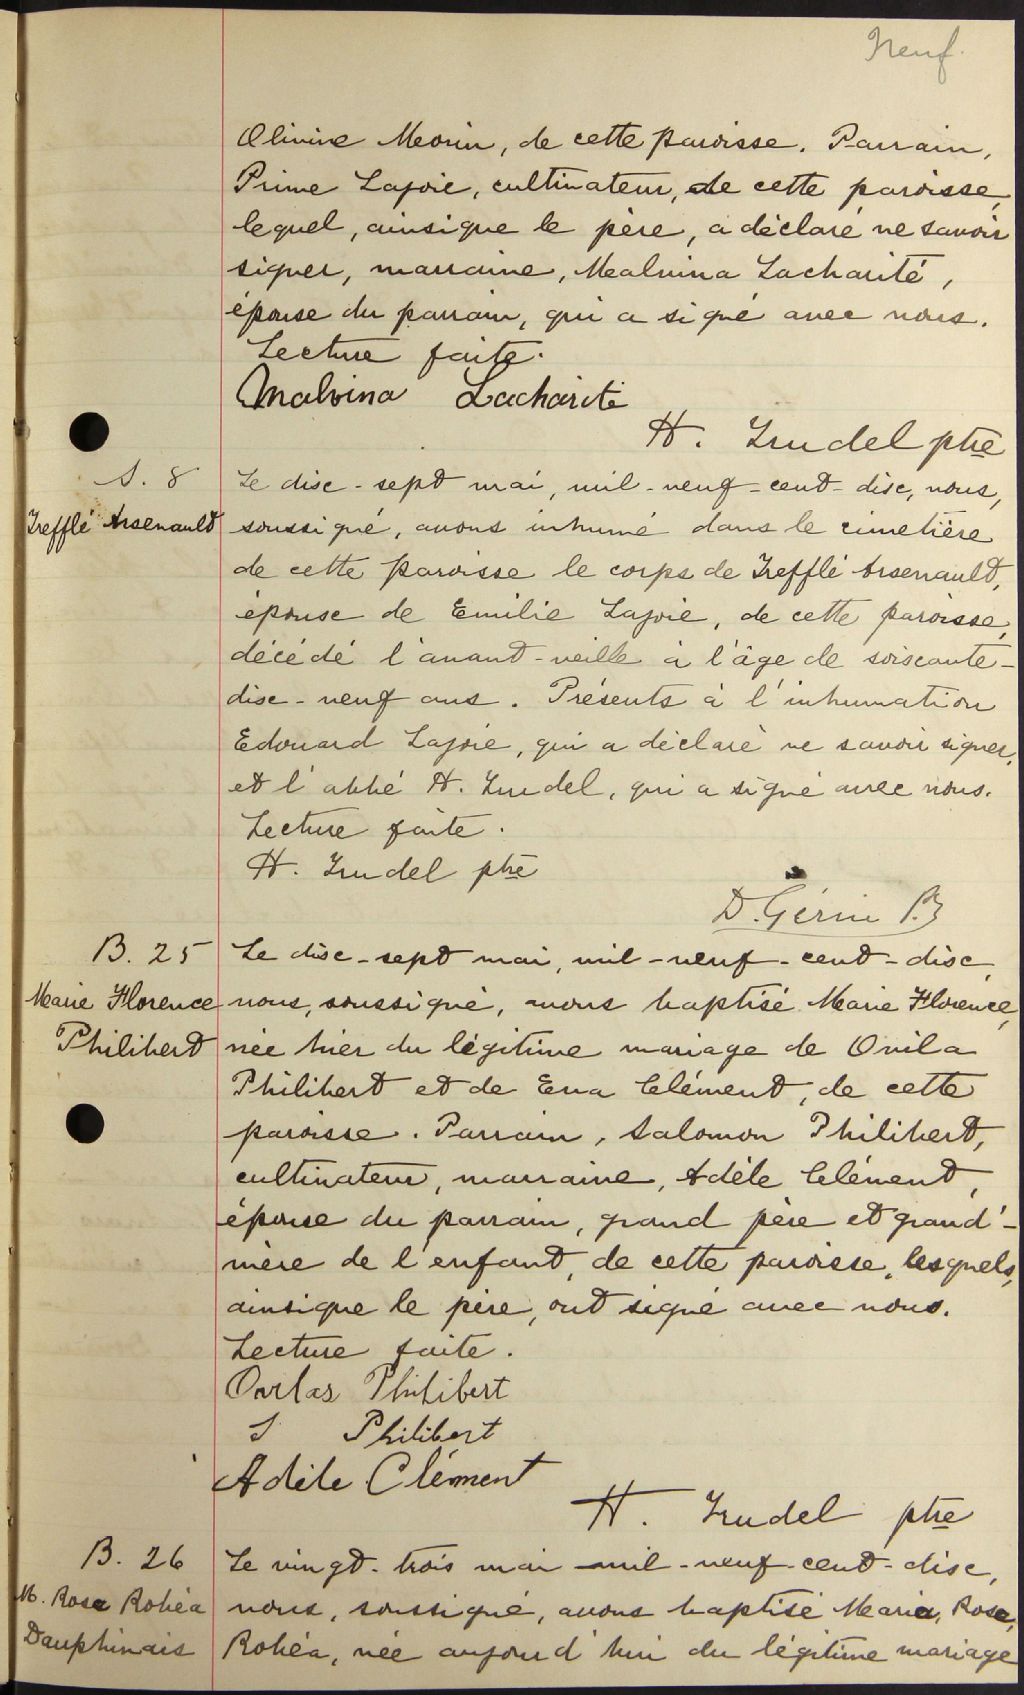 Neuf.
Olivine Morin, de cette paroisse. Parrain,
Prime Lajoie, cultivateur, de cette paroisse,
lequel, ainsique le père, a déclaré ne savoir
signer, marraine, Malvina Lacharité,
épouse du parrain, qui a signé avec nous.
Lecture faite.
Malvina Lacharité
H. Trudel ptre
S. 8
Trefflé Arsenault
Le dix-sept mai, mil-neuf-cent-dix, nous,
soussigné, avons inhumé dans le cimetière
de cette paroisse le corps de Trefflé Arsenault,
épouse de Emilie Lajoie, de cette paroisse,
décédé l'avant-veille à l'âge de soixante-
dix-neuf ans. Présents à l'inhumation
Edouard Lajoie, qui a déclaré ne savoir signer,
et l'abbé H. Trudel, qui a signé avec nous.
Lecture faite.
H. Trudel ptre
D. Gérin
B. 25
Marie Florence
Philibert
Le dix-sept mai, mil-neuf-cent-dix,
nous, soussigné, avons baptisé Marie Florence,
née hier du légitime mariage de Ovila
Philibert et de Eva Clément, de cette
paroisse. Parrain, Salomon Philibert,
cultivateur, marraine, Adèle Clément,
épouse du parrain, grand père et grand'-
mère de l'enfant, de cette paroisse, lesquels,
ainsique le père, ont signé avec nous.
Lecture faite.
Philibert
S Philibert
Adèle Clément
H. Trudel ptre
B. 26
M. Rose Rohéa
Dauphinais
Le vingt-trois mai mil-neuf-cent-dix,
nous, soussigné, avons baptisé Maria, Rose,
Rohéa, née aujourd'hui du légitime mariage